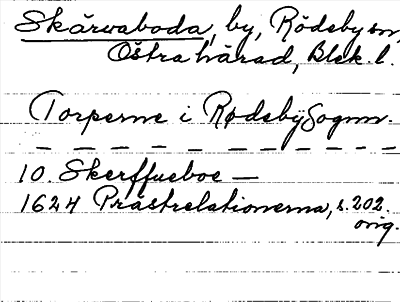 Skärvaboda, by, Rödeby sn,
Östra härad, Blek. l.
Torperne i Rødebÿ Sognn.
— — — — — — — — — — — —
10. Skerffueboe —
1624 Prästrelationerna, s. 202.
orig.